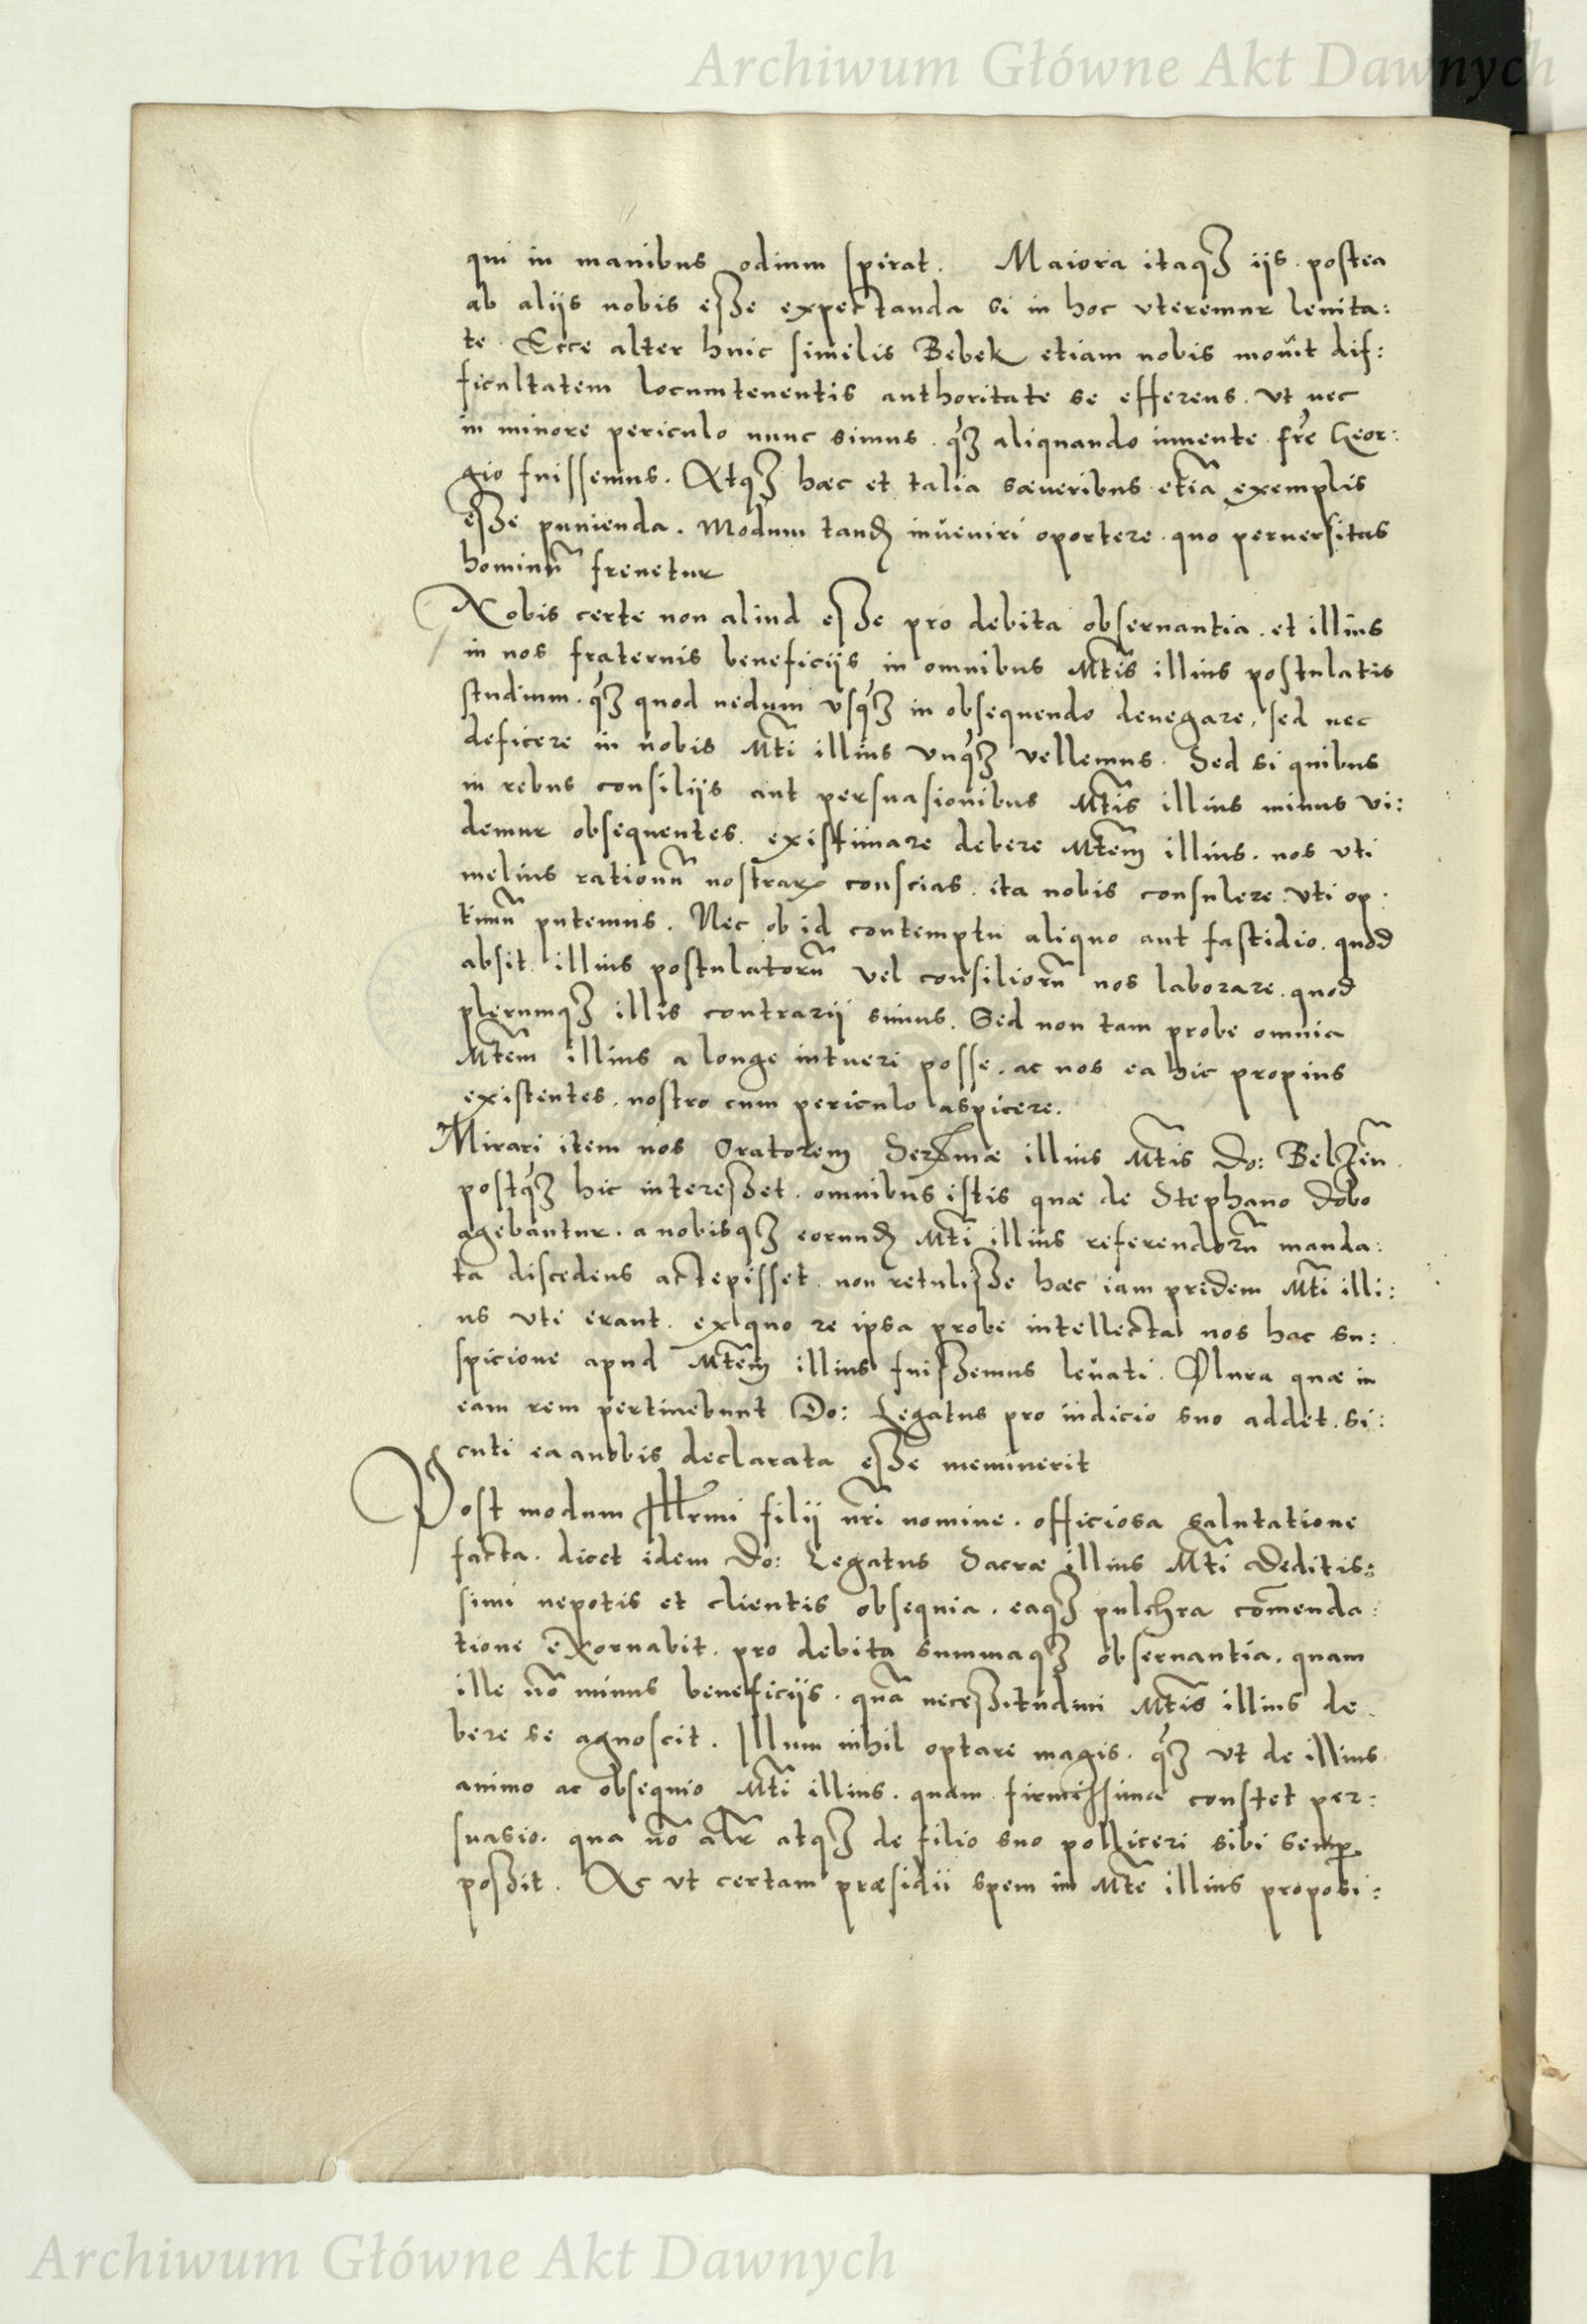 Archiwum Główne Akt Dawnych
qui in manibus odium spirat. Maiora itaqȝ iis postea
ab aliis nobis eße expectanda si in hoc vteremur lenita:
te. Ecce alter huic similis Bebek etiam nobis mouit dif:
ficultatem locumtenentis authoritate se efferens. vt nec
in minore periculo nunc simus. qȝ aliquando iuuente fr̃e Geor:
gio fuissemus. Atqȝ hæc et talia sæueribus etiã exemplis
eße punienda. Modum tandẽ inueniri oportere. quo peruersitas
hominũ frenetur
Nobis certe non aliud eße pro debita obseruantia. et illius
in nos fraternis beneficiis in omnibus Mt̃is illius postulatis
studium. qȝ quod nedum vsqȝ in obsequendo denegare, sed nec
deficere in nobis Mt̃i illius vnqȝ vellemus. Sed si quibus
in rebus consiliis aut persuasionibus Mt̃is illius minus vi:
demur obsequentes. existimare debere Mt̃em illius. nos vti
melius rationũ nostrarꝝ conscias. ita nobis consulere. vti op:
timũ putemus. Nec ob id contemptu aliquo aut fastidio. quod
absit. illius postulatorũ vel consiliorũ nos laborare. quod
plerumqȝ illis contrarii simus. Sed non tam probe omnia
Mt̃em illius a longe intueri posse. ac nos ea hic propius
existentes. nostro cum periculo aspicere.
Mirari item nos Oratorem Serꝰmæ illius Mt̃is Do: Belzẽn.
postqȝ hic intereßet. omnibus istis quæ de Stephano Dobo
agebantur. a nobisqȝ eorundẽ Mt̃i illius referendorũ manda:
ta discedens accepisset. non retuliße hæc iam pridem Mt̃i illi:
us vti erant. ex quo re ipsa probe intellecta nos hac su:
spicione apud Mt̃em illius fuißemus leuati. Plura quæ in
eam rem pertinebunt Do: Legatus pro iudicio suo addet. si:
cuti ea a nobis declarata eße meminerit
Post modum Illr̃mi filii nr̃i nomine. officiosa salutatione
facta. dicet idem Do: Legatus Sacræ illius Mt̃i deditis:
simi nepotis et clientis obsequia. eaqȝ pulchra com̃enda:
tione exornabit. pro debita summaqȝ obseruantia. quam
ille nõ minus beneficiis. quã neceßitudini Mt̃is illius de
bere se agnoscit. Illum nihil optare magis. qȝ vt de illius
animo ac obsequio Mt̃i illius. quam firmissima constet per:
suasio. qua nõ al̃r atqȝ de filio suo polliceri sibi semꝑ
poßit. Ac vt certam præsidii spem in Mt̃e illius proposi:
Archiwum Główne Akt Dawnych